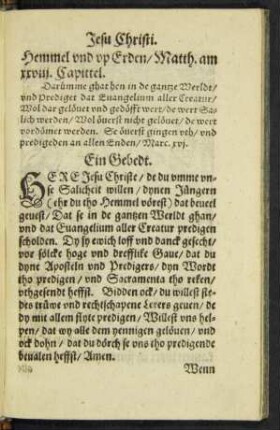 Jesu Christi.
Hemmel vnd vp Erden/ Matth. am
xxviij. Capittel.
Darümme ghat hen in de gantze Werldt/
vnd Prediget dat Euangelium aller Creatur/
Wol dar gelöuet vnd gedöfft wert/ de wert Sa-
lich werden/ Wol öuerst nicht gelöuet/ de wert
vordömet werden. Se öuerst gingen vth/ vnd
predigeden an allen Enden/ Marc. xvj.
Ein Gebedt.
HERE Jesu Christe/ de du vmme vn-
se Salicheit willen/ dynen Jüngern
(ehr du tho Hemmel vörest) dat beuel
geuest/ Dat se in de gantzen Werldt ghan/
vnd dat Euangelium aller Creatur predigen
scholden. Dy sy ewich loff vnd danck gesecht/
vor sölcke hoge vnd drefflike Gaue/ dat du
dyne Aposteln vnd Predigers/ dyn Wordt
tho predigen/ vnd Sacramenta tho reken/
vthgesendt heffst. Bidden ock/ du willest ste-
des trüwe vnd rechtschapene Lerers geuen/ de
dy mit allem flyte predigen/ Willest vns hel-
pen/ dat wy alle dem yennigen gelöuen/ vnd
ock dohn/ dat du dörch se vns tho predigende
beualen heffst/ Amen.
Wenn